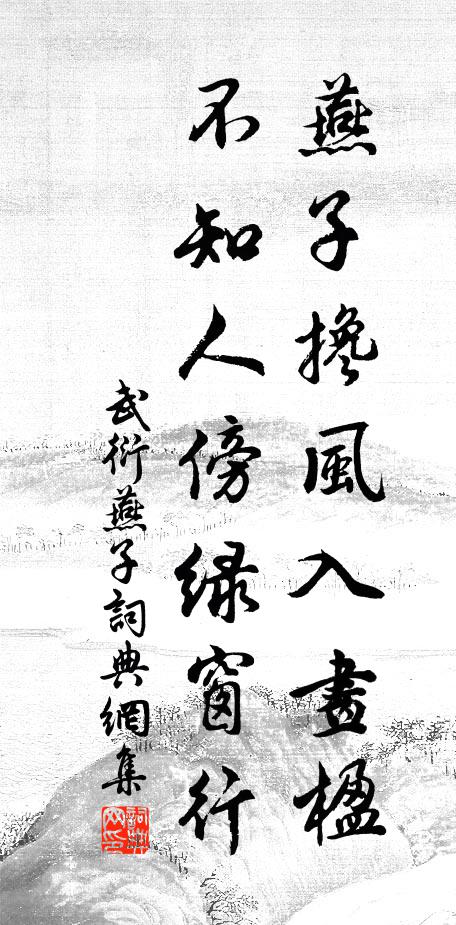 燕子搀風入畫楹
不知人傍绿窗行
武衍燕子詞典網集